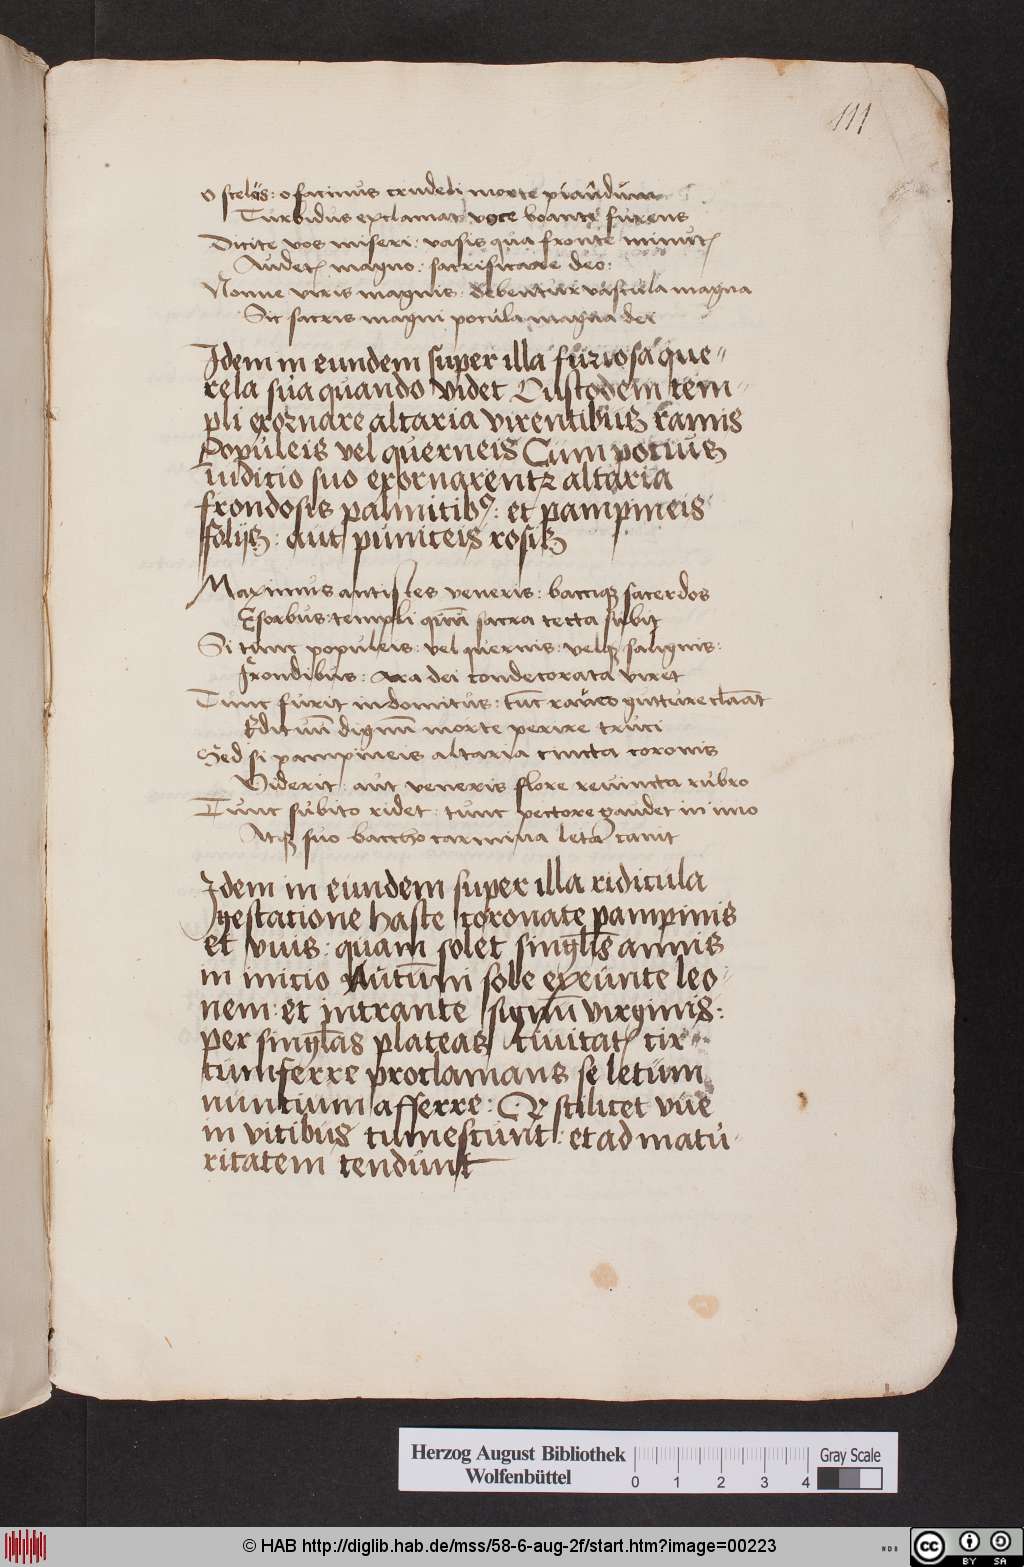 111
O scelus: o facinus crudeli morte piandum
Turbidus exclamat voce boante furens
Dicite vos miseri: vasis qua fronte minutis
Audetis magno: sacrificare deo:
Nonne viris magnis: debentur vascula magna
Sic sacris magni pocula magna dei
Idem in eundem super illa furiosa que-
rela sua quando videt Custodem tem-
pli exornare altaria virentibus ramis
Populeis vel querneis Cum potius
iudicio suo exornarentur altaria
frondosis palmitibus: et pampineis
folijs: aut puniceis rosis
Maximus antistes veneris: baccique sacerdos
Esorbus: templi quum sacra tecta subit
Si tunc populeis: vel quernis: velque salignis:
Frondibus: Ara dei condecorata viret
Tunc furit indomitus: tunc rauco gutture clamat
Edituum dignum morte perire truci
Sed si pampineis altaria cincta coronis
Viderit: aut veneris flore revincta rubro
Tunc subito ridet: tunc pectore gaudet in imo
Atque suo baccho carmina leta canit
Idem in eundem super illa ridicula
gestatione haste coronate pampinis
et vuis: quam solet singulis annis
in inicio Autumni sole exeunte leo-
nem: et intrante signum virginis:
per singulas plateas civitatis cir-
cumferre proclamans se letum
nuncium afferre: Quod scilicet vue
in vitibus tumescunt: et ad matu-
ritatem tendunt
Herzog August Bibliothek
Wolfenbüttel
0 1 2 3 4
Gray Scale
© HAB http://diglib.hab.de/mss/58-6-aug-2f/start.htm?image=00223
cc BY SA